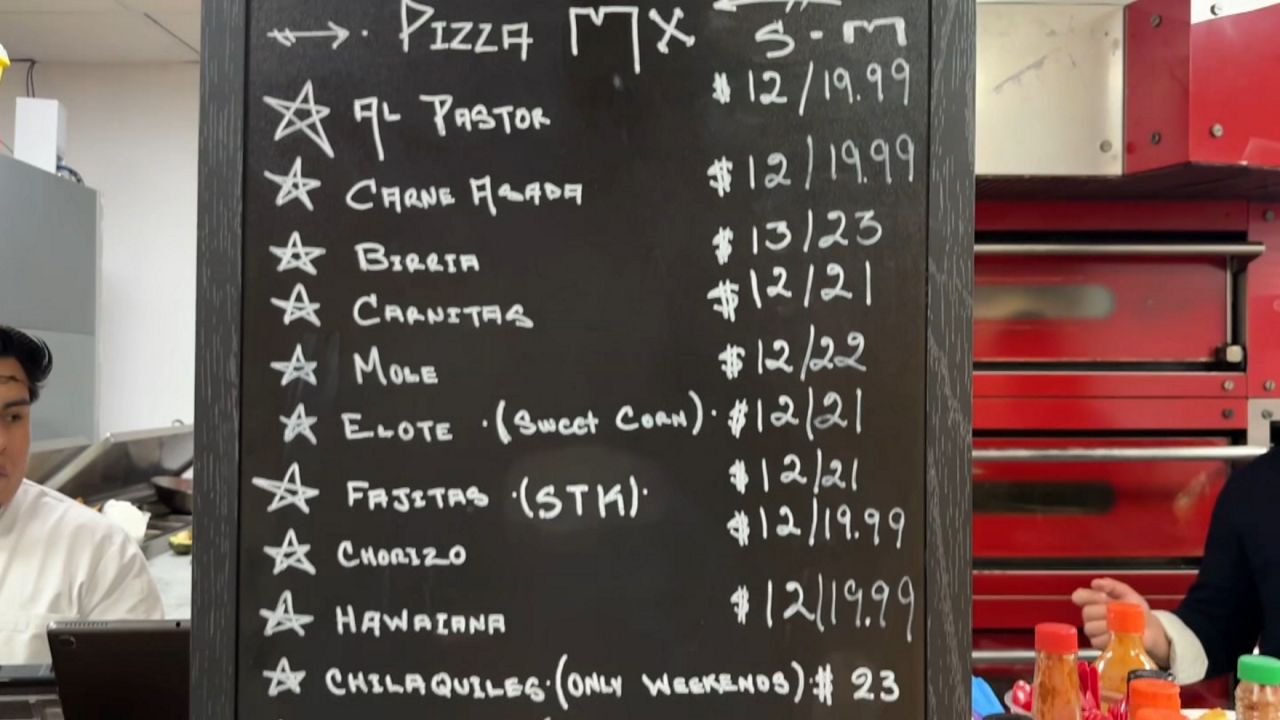 PIZZA MX S - M
AL PASTOR $ 12/19.99
CARNE ASADA $ 12/19.99
BIRRIA $ 13/23
CARNITAS $ 12/21
MOLE $ 12/22
ELOTE (SWEET CORN) $ 12/21
FAJITAS (STK) $ 12/21
CHORIZO $ 12/19.99
HAWAIANA $ 12/19.99
CHILAQUILES (ONLY WEEKENDS) $ 23